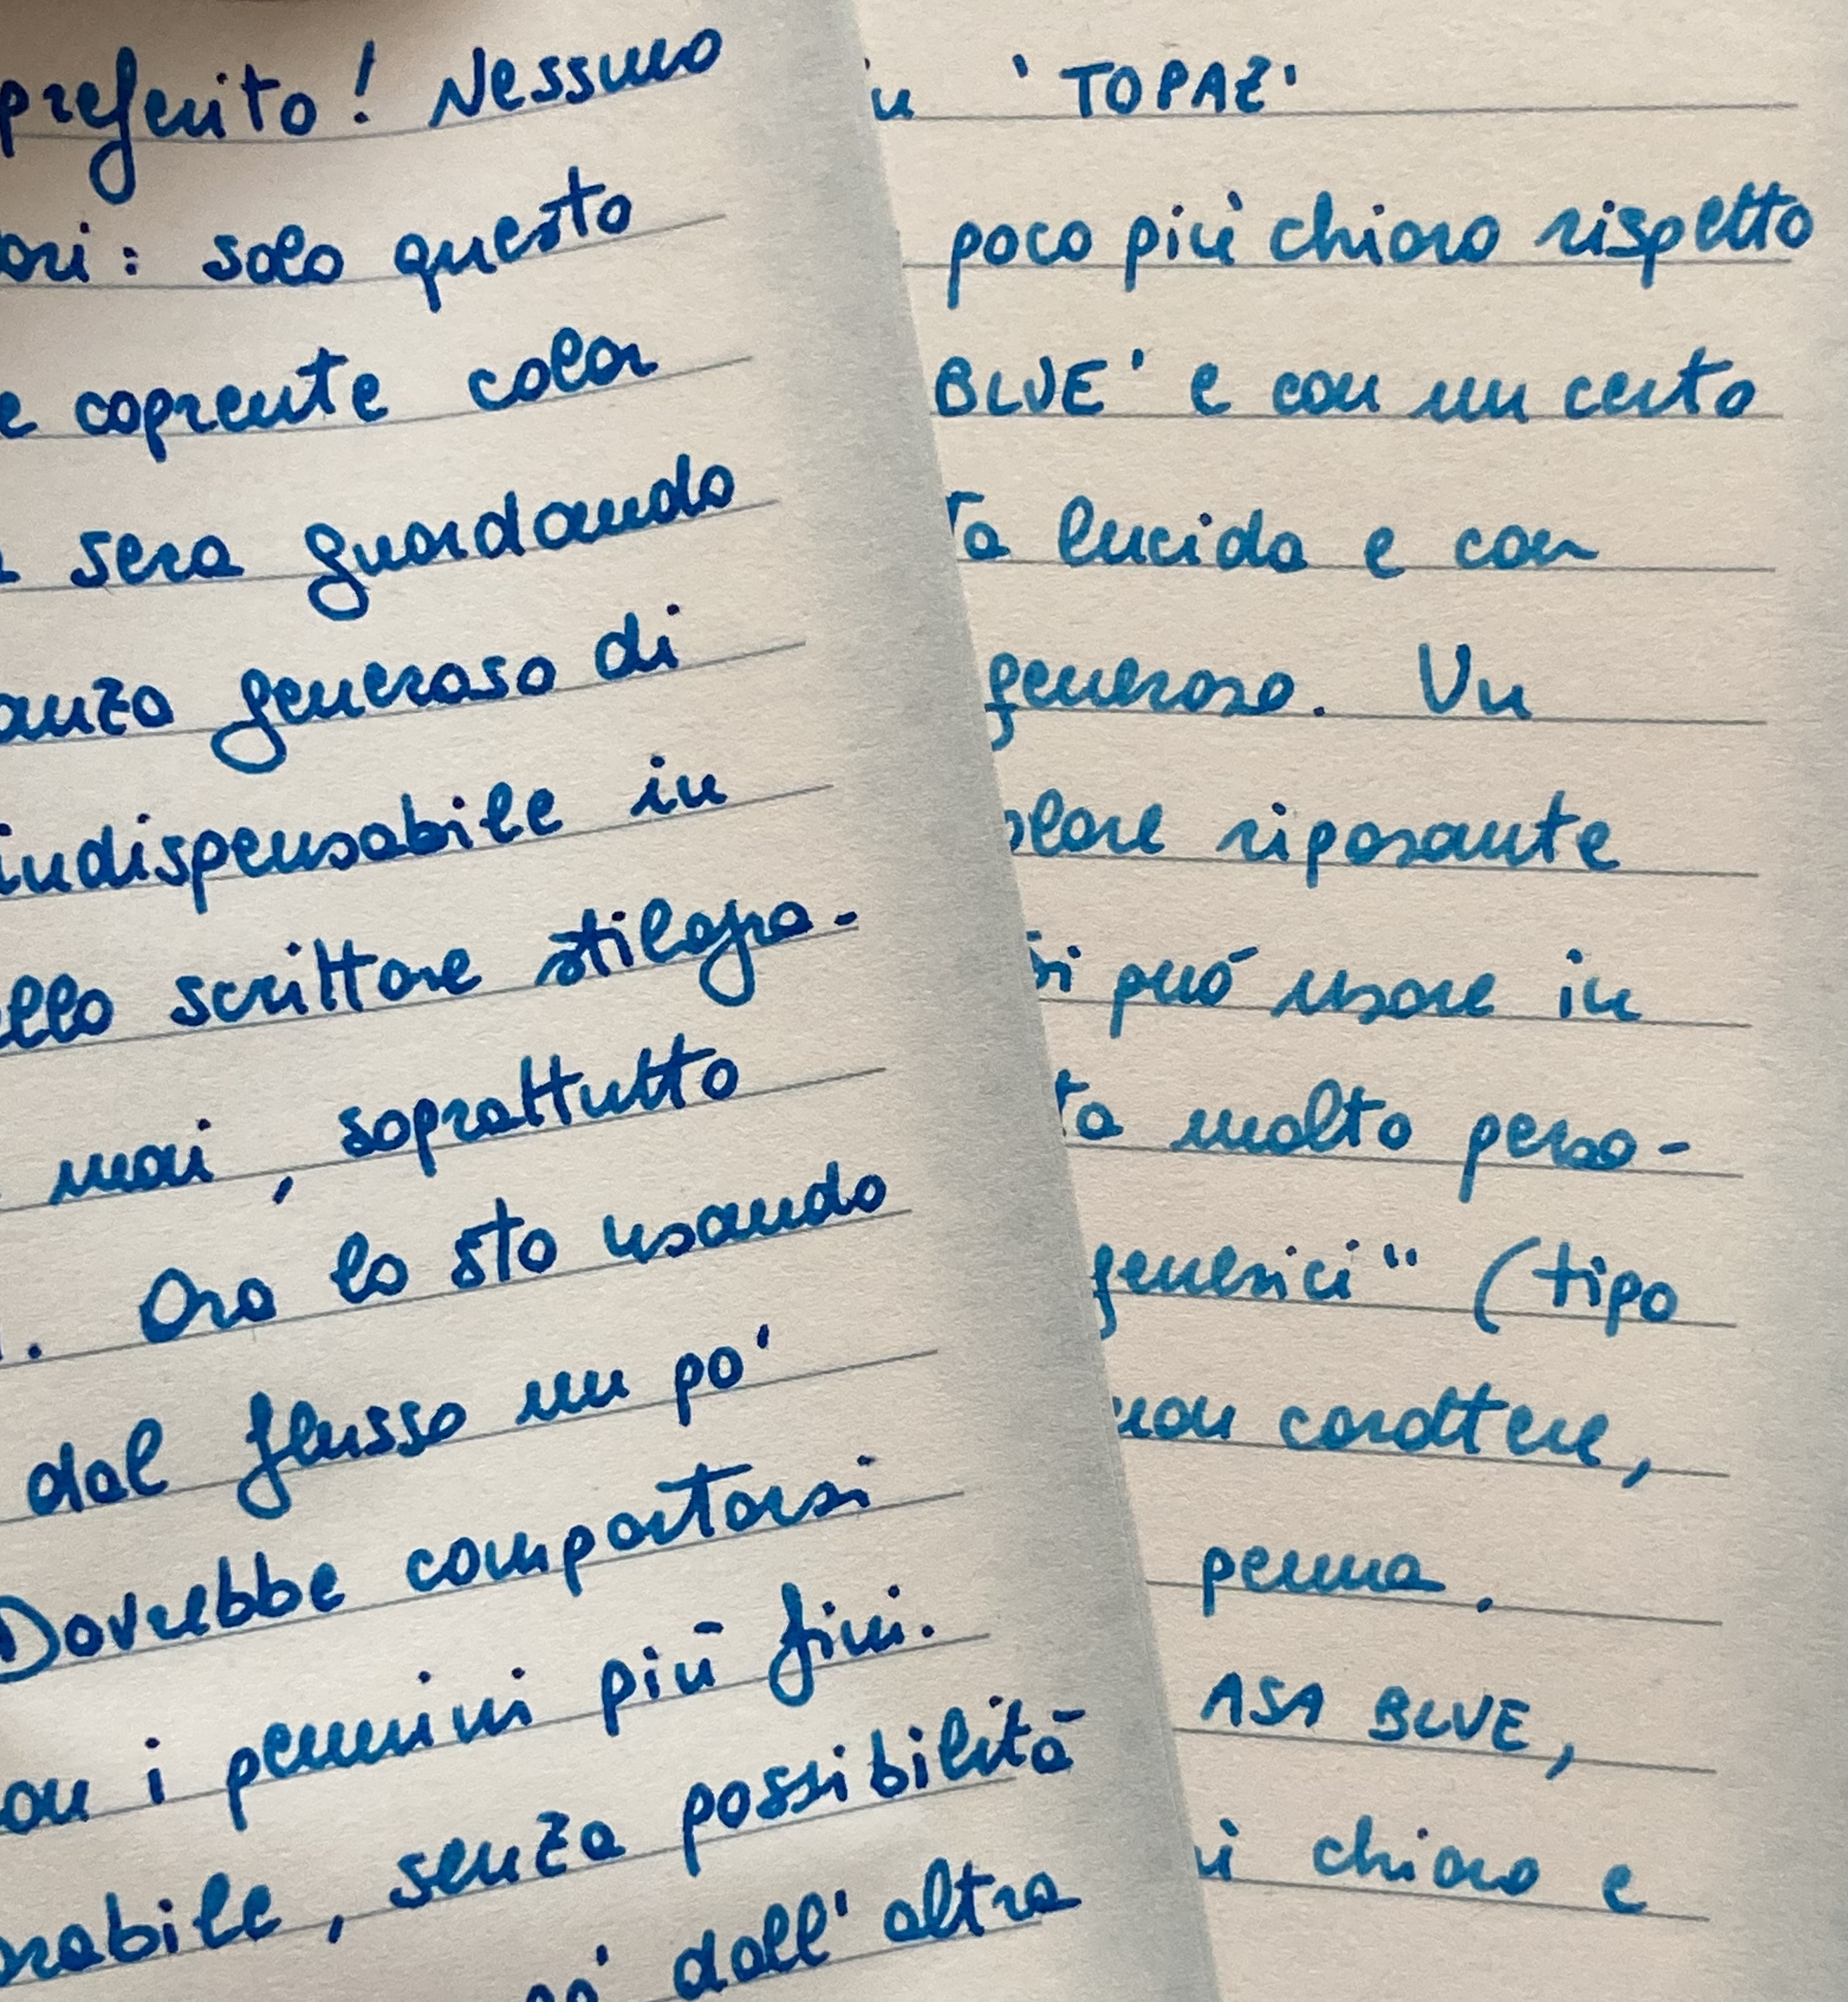 preferito! Nessuno
ori: solo questo
e coprente color
sera guardando
anza generoso di
indispensabile in
ello scrittore stilogra-
mai, soprattutto
. Ora lo sto usando
dal flusso un po'
Dovrebbe comportarsi
on i pennini più fini.
rabile, senza possibilità
po' dall'altra
in 'TOPAZ'
poco più chiaro rispetto
BLUE' e con un certo
ta lucida e con
generoso. Un
olore riposante
si può usare in
ta molto perso-
generici" (tipo
non carattere,
penna.
ASA BLUE,
ù chiaro e